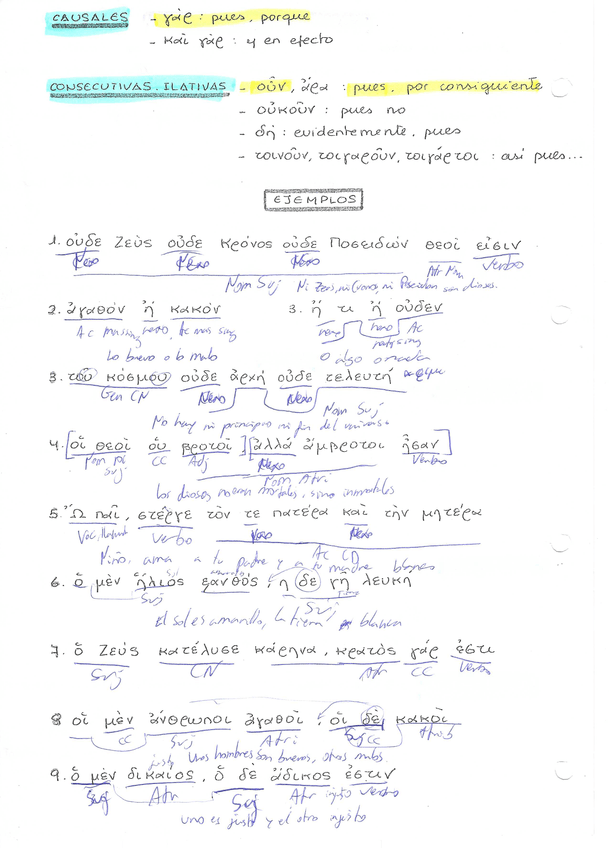 CAUSALES - γάρ : pues, porque
- καὶ γάρ : y en efecto
CONSECUTIVAS. ILATIVAS - οὖν, ἄρα : pues, por consiguiente
- οὐκοῦν : pues no
- δή : evidentemente, pues
- τοινοῦν, τοιγαροῦν, τοιγάρτοι : así pues...
EJEMPLOS
1. οὐδε Ζεὺς οὐδε Κρόνος οὐδε Ποσειδών θεοί εἰσιν
Nexo Nexo Nexo Verbo
Nom Suj Ni Zeus, ni Crono, ni Poseidon son dioses.
2. ἀγαθόν ἤ κακόν 3. ἤ τι ἤ οὐδεν
nexo nexo nexo Ac
Lo bueno o lo malo O algo o nada
3. τοῦ κόσμου οὐδε ἀρχή οὐδε τελευτή
Gen CN Nexo Nexo Nom Suj
No hay ni principio ni fin del
4. οἱ θεοί οὐ βροτοί ἀλλά ἄμβροτοι ἦσαν
Nom pl Suj CC Adj Nexo Nom Atri Verbo
Los dioses no eran mortales, sino inmortales
5. Ὦ παῖ, στέργε τὸν τε πατέρα καὶ τὴν μητέρα
Verbo Nexo Nexo
Ac CD
Niño, ama a tu padre y a tu madre
6. ὁ μὲν ἥλιος ξανθός, ἡ δε γῆ λευκη
Suj Suj
El sol es amarillo, la tierra blanca
7. ὅ Ζεὺς κατέλυσε κάρηνα, κρατὸς γάρ ἐστι
Suj CN Atr CC Verbo
8 οἱ μὲν ἄνθρωποι ἀγαθοί, οἱ δὲ κακοὶ
CC Suj Atri Suj CC Atrib
Unos hombres son buenos, otros malos.
9. ὅ μὲν δικαίος, ὅ δὲ ἄδικος ἐστιν
Suj Atr Suj Atr Verbo
uno es justo y el otro injusto